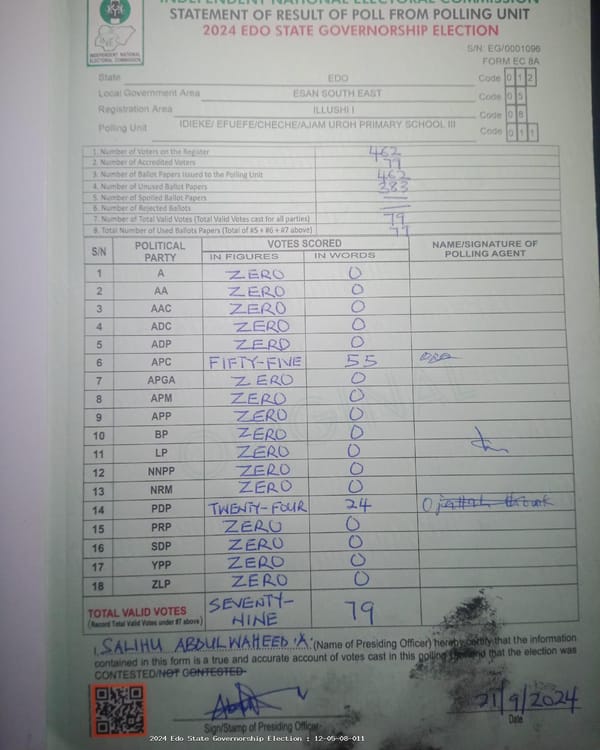 INDEPENDENT NATIONAL ELECTORAL COMMISSION
STATEMENT OF RESULT OF POLL FROM POLLING UNIT
2024 EDO STATE GOVERNORSHIP ELECTION
INDEPENDENT NATIONAL ELECTORAL COMMISSION
S/N: EG/0001096
FORM EC 8A
State EDO Code 0 1 2
Local Government Area ESAN SOUTH EAST Code 0 5
Registration Area ILLUSHI I Code 0 8
Polling Unit IDIEKE/ EFUEFE/CHECHE/AJAM UROH PRIMARY SCHOOL III Code 0 1 1
1. Number of Voters on the Register 462
2. Number of Accredited Voters 79
3. Number of Ballot Papers Issued to the Polling Unit 462
4. Number of Unused Ballot Papers 383
5. Number of Spoiled Ballot Papers —
6. Number of Rejected Ballots —
7. Number of Total Valid Votes (Total Valid Votes cast for all parties) 79
8. Total Number of Used Ballots Papers (Total of #5 + #6 + #7 above) 79
S/N POLITICAL PARTY VOTES SCORED NAME/SIGNATURE OF POLLING AGENT
IN FIGURES IN WORDS
1 A ZERO 0
2 AA ZERO 0
3 AAC ZERO 0
4 ADC ZERO 0
5 ADP ZERO 0
6 APC FIFTY-FIVE 55
7 APGA ZERO 0
8 APM ZERO 0
9 APP ZERO 0
10 BP ZERO 0
11 LP ZERO 0
12 NNPP ZERO 0
13 NRM ZERO 0
14 PDP TWENTY-FOUR 24
15 PRP ZERO 0
16 SDP ZERO 0
17 YPP ZERO 0
18 ZLP ZERO 0
TOTAL VALID VOTES SEVENTY-NINE 79
(Record Total Valid Votes under #7 above)
I, SALIHU ABDULWAHEED .A. (Name of Presiding Officer) hereby certify that the information
contained in this form is a true and accurate account of votes cast in this polling unit and that the election was
CONTESTED/NOT CONTESTED
21/9/2024
Sign/Stamp of Presiding Officer Date
2024 Edo State Governorship Election : 12-05-08-011